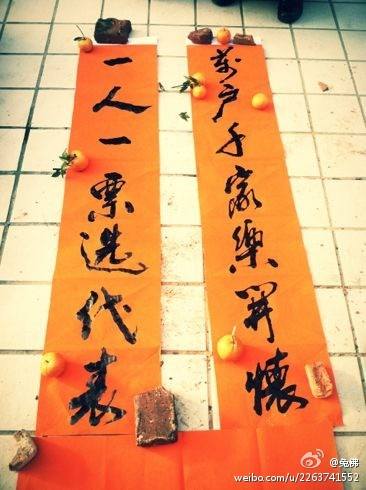 一人一票选代表
萬户千家樂開懷
@兔佛
weibo.com/u/2263741552